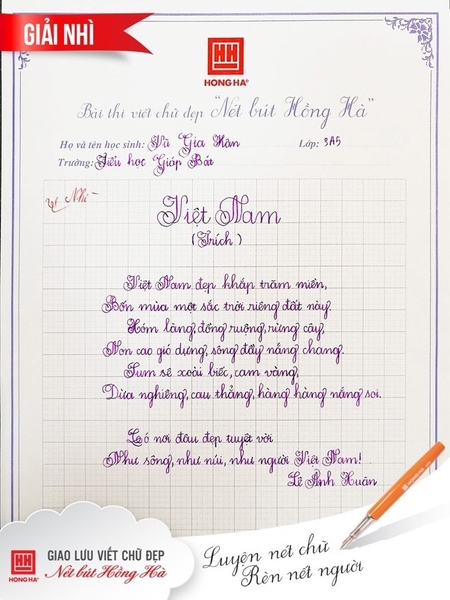 GIẢI NHÌ
HH
HONG HA®
Bài thi viết chữ đẹp "Nét bút Hồng Hà"
Họ và tên học sinh: Vũ Gia Hân Lớp: 3A5
Trường: Tiểu học Giáp Bát
Nhì
Việt Nam
(Trích)
Việt Nam đẹp khắp trăm miền,
Bốn mùa một sắc trời riêng đất này.
Xóm làng, đồng ruộng, rừng cây,
Non cao gió dựng, sông đầy nắng chang.
Sum sê xoài biếc, cam vàng,
Dừa nghiêng, cau thẳng, hàng hàng nắng soi.
Có nơi đâu đẹp tuyệt vời
Như sông, như núi, như người Việt Nam!
Lê Anh Xuân
HH
HONG HA®
GIAO LƯU VIẾT CHỮ ĐẸP
Nét bút Hồng Hà
Luyện nét chữ
Rèn nét người
HONG HA